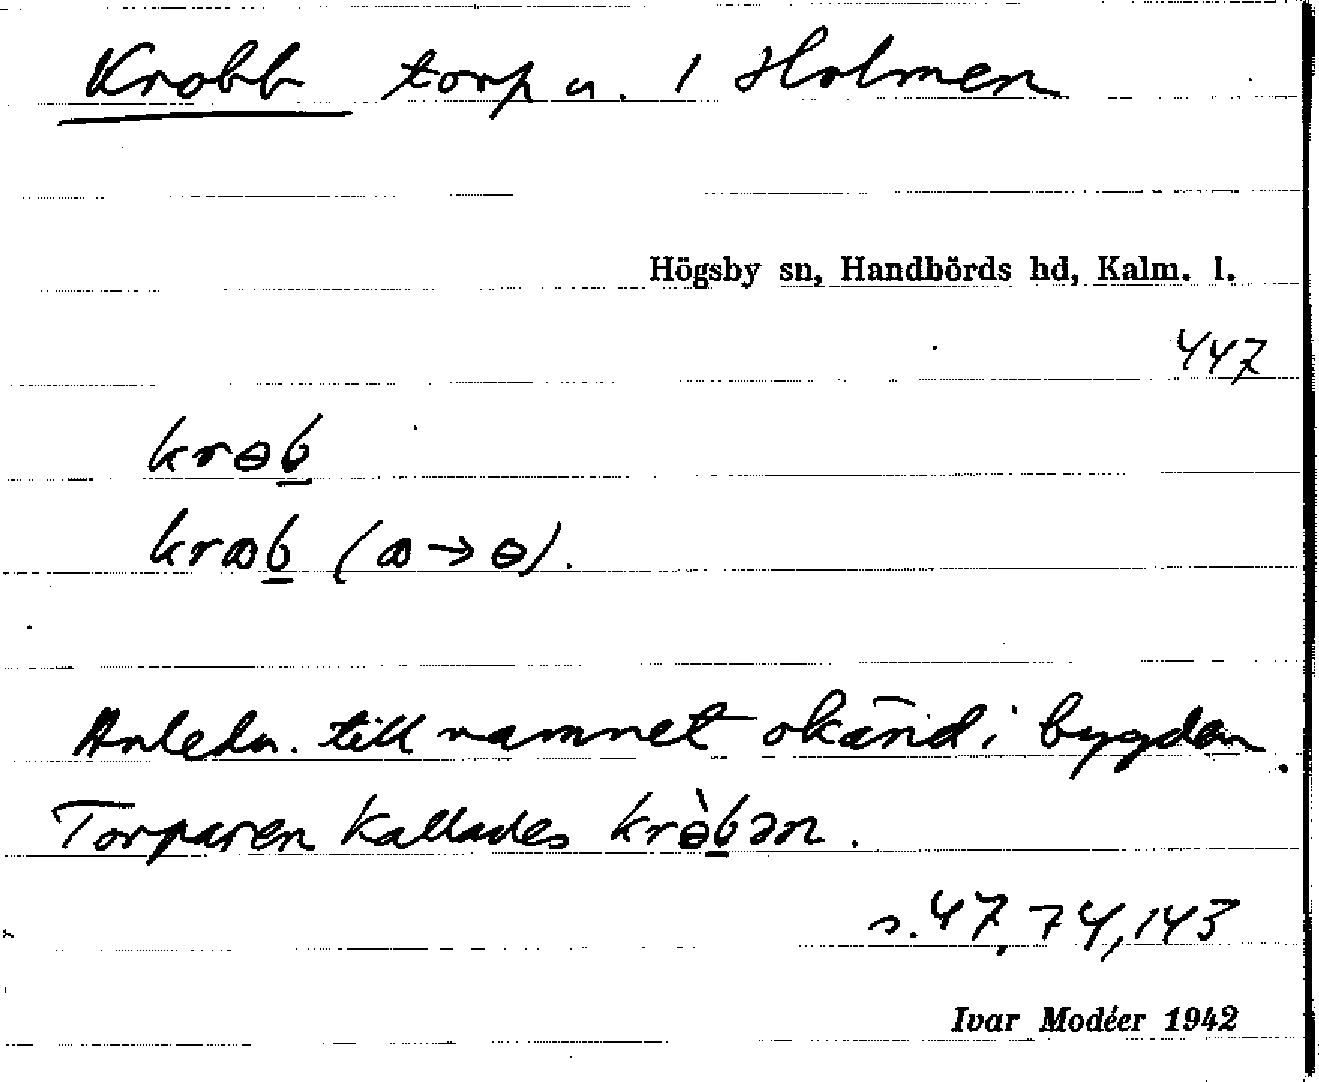 Krobb torp u. 1 Holmen
Högsby sn, Handbörds hd, Kalm. l.
447
krɵb̲
krꝏb̲ (ꝏ→ɵ).
Anledn. till namnet okänd i bygden.
Torparen kallades krɵ̀b̲ən.
s. 47, 74, 143
Ivar Modéer 1942